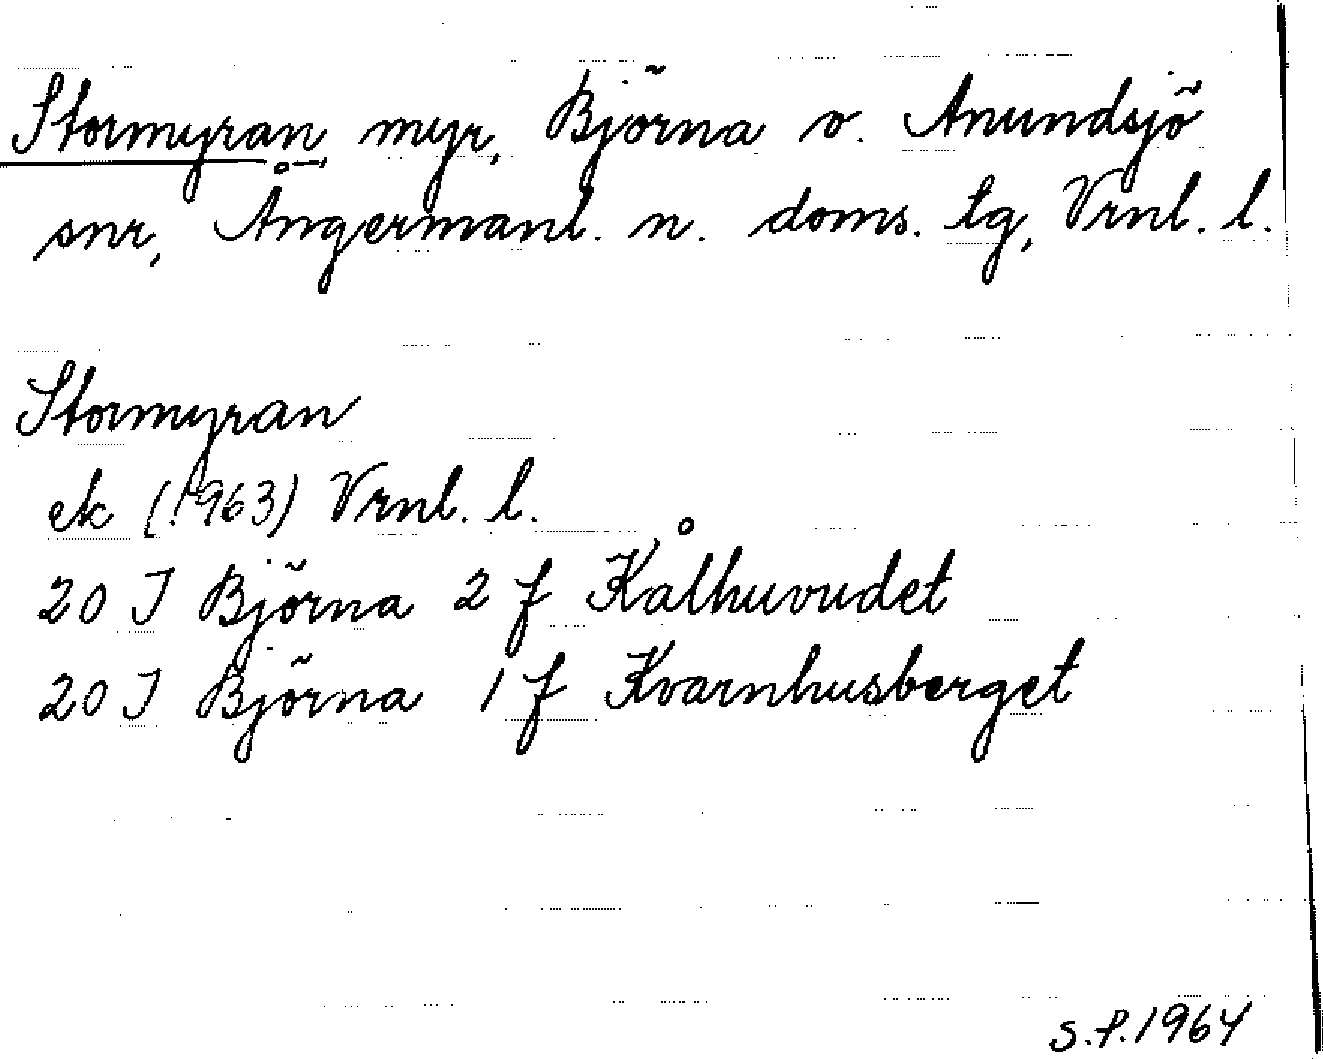 Stormyran myr, Björna o. Anundsjö
snr, Ångermanl. n. doms. tg, Vrnl. l.
Stormyran
ek (1963) Vrnl. l.
20 I Björna 2 f Kålhuvudet
20 I Björna 1 f Kvarnhusberget
S.P.1964